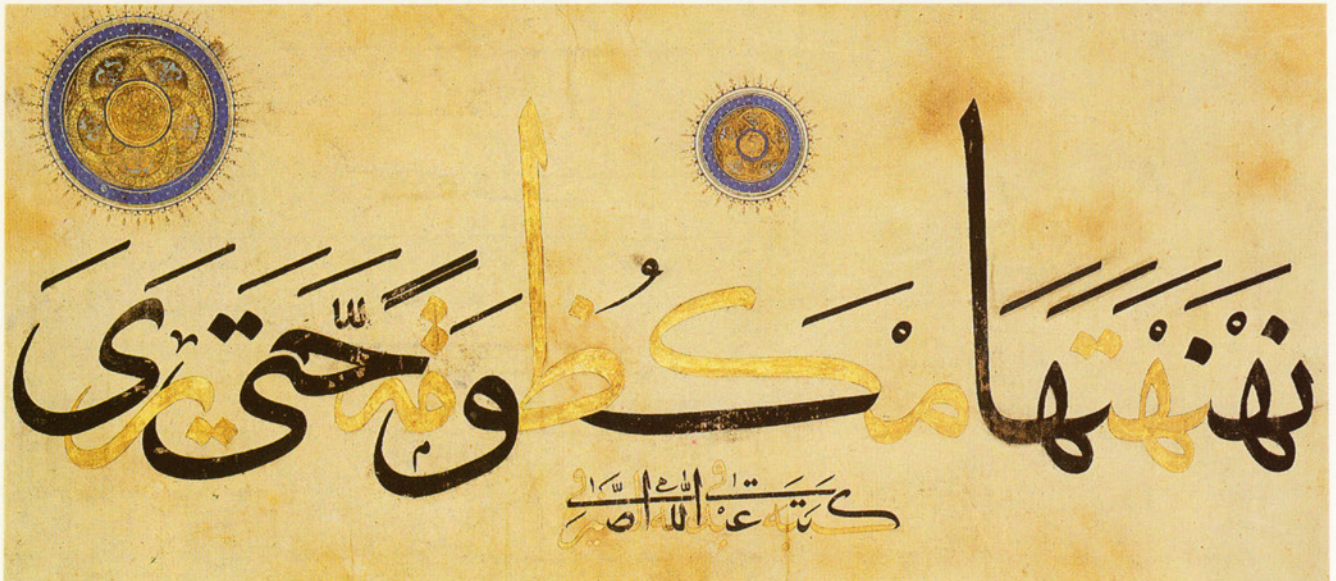 نَهْنَهْتَهَا مَكْظُومَةً حَتَّى يَرَى
كتبه عبد الله الصيرفي